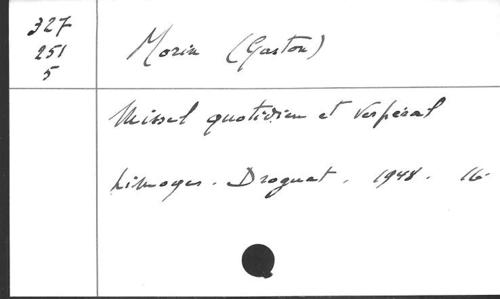 327
251
5
Morin (Gaston)
Missel quotidien et vespéral
Limoges. Droguet. 1948. 16-